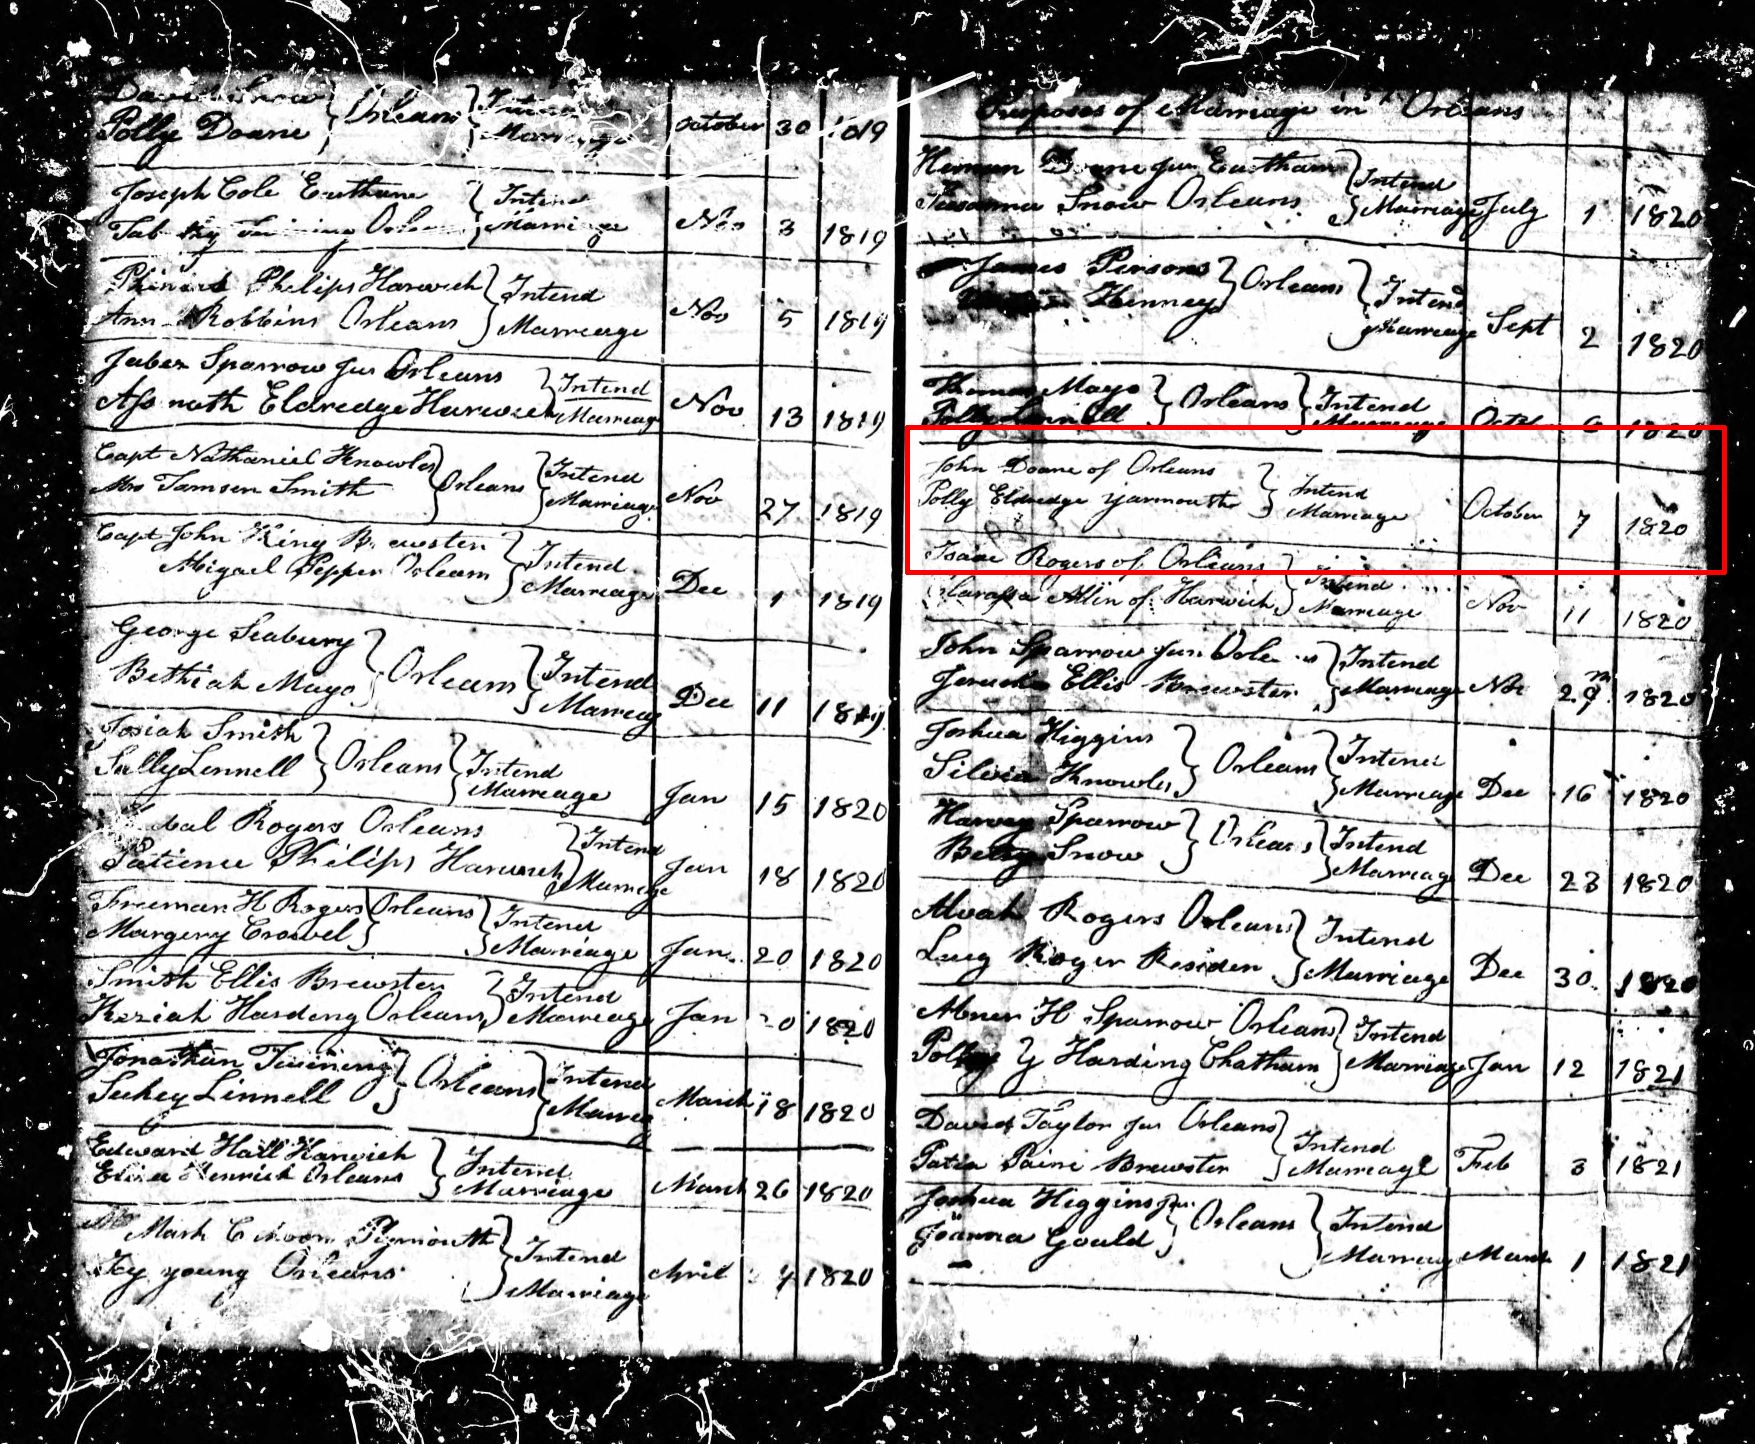 David Snow } Orleans } Intend
Polly Doane } Marriage October 30 1819
Joseph Cole Eastham } Intend
Orleans } Marriage Nov 3 1819
Philips Harwich } Intend
Ann Robbins Orleans } Marriage Nov 5 1819
Jabez Sparrow Jur Orleans } Intend
Eldredge Harwich } Marriage Nov 13 1819
Capt Nathaniel Knowles } Orleans } Intend
Mrs Tamsen Smith } Marriage Nov 27 1819
Capt John King Brewster } Intend
Abigael Pepper Orleans } Marriage Dec 1 1819
George Seabury } Orleans } Intend
Bethiah Mayo } Marriag Dec 11 1819
Josiah Smith } Orleans } Intend
Sally Linnell } Marriage Jan 15 1820
Rogers Orleans } Intend
Patience Philips Harwich } Marriage Jan 18 1820
Freeman H Rogers } Orleans } Intend
Margery Crowel } Marriage Jan 20 1820
Smith Ellis Brewster } Intend
Keziah Harding Orleans } Marriage Jan 20 1820
Jonathan Twining } Orleans } Intend
Sukey Linnell } Marriag March 18 1820
Edward Hall Harwich } Intend
Orleans } Marriage March 26 1820
Mark Plymouth } Intend
young Orleans } Marriage April 1820
Purposes of Marriage in Orleans
Heman Doane Jur Eastham } Intend
Susanna Snow Orleans } Marriage July 1 1820
James Persons } Orleans } Intend
Kenney } Marriage Sept 2 1820
Thomas Mayo } Orleans } Intend
Polly Linnell } Marriage 1820
John Doane of Orleans } Intend
Polly Eldredge Yarmouth } Marriage October 7 1820
Isaac Rogers of Orleans } Intend
Allen of Harwich } Marriage Nov 11 1820
John Sparrow Jur } Intend
Ellis Brewster } Marriage Nov 29 1820
Joshua Higgins } Orleans } Intend
Silvia Knowles } Marriage Dec 16 1820
Harvey Sparrow } Orleans } Intend
Betsy Snow } Marriag Dec 23 1820
Alvah Rogers Orleans } Intend
Lucy Roger Residen } Marriage Dec 30 1820
Abner H Sparrow Orleans } Intend
Polly Y Harding Chatham } Marriage Jan 12 1821
David Taylor Jur Orleans } Intend
Paine Brewster } Marriage Feb 3 1821
Joshua Higgins Jur } Orleans } Intend
Joanna Gould } Marriag March 1 1821